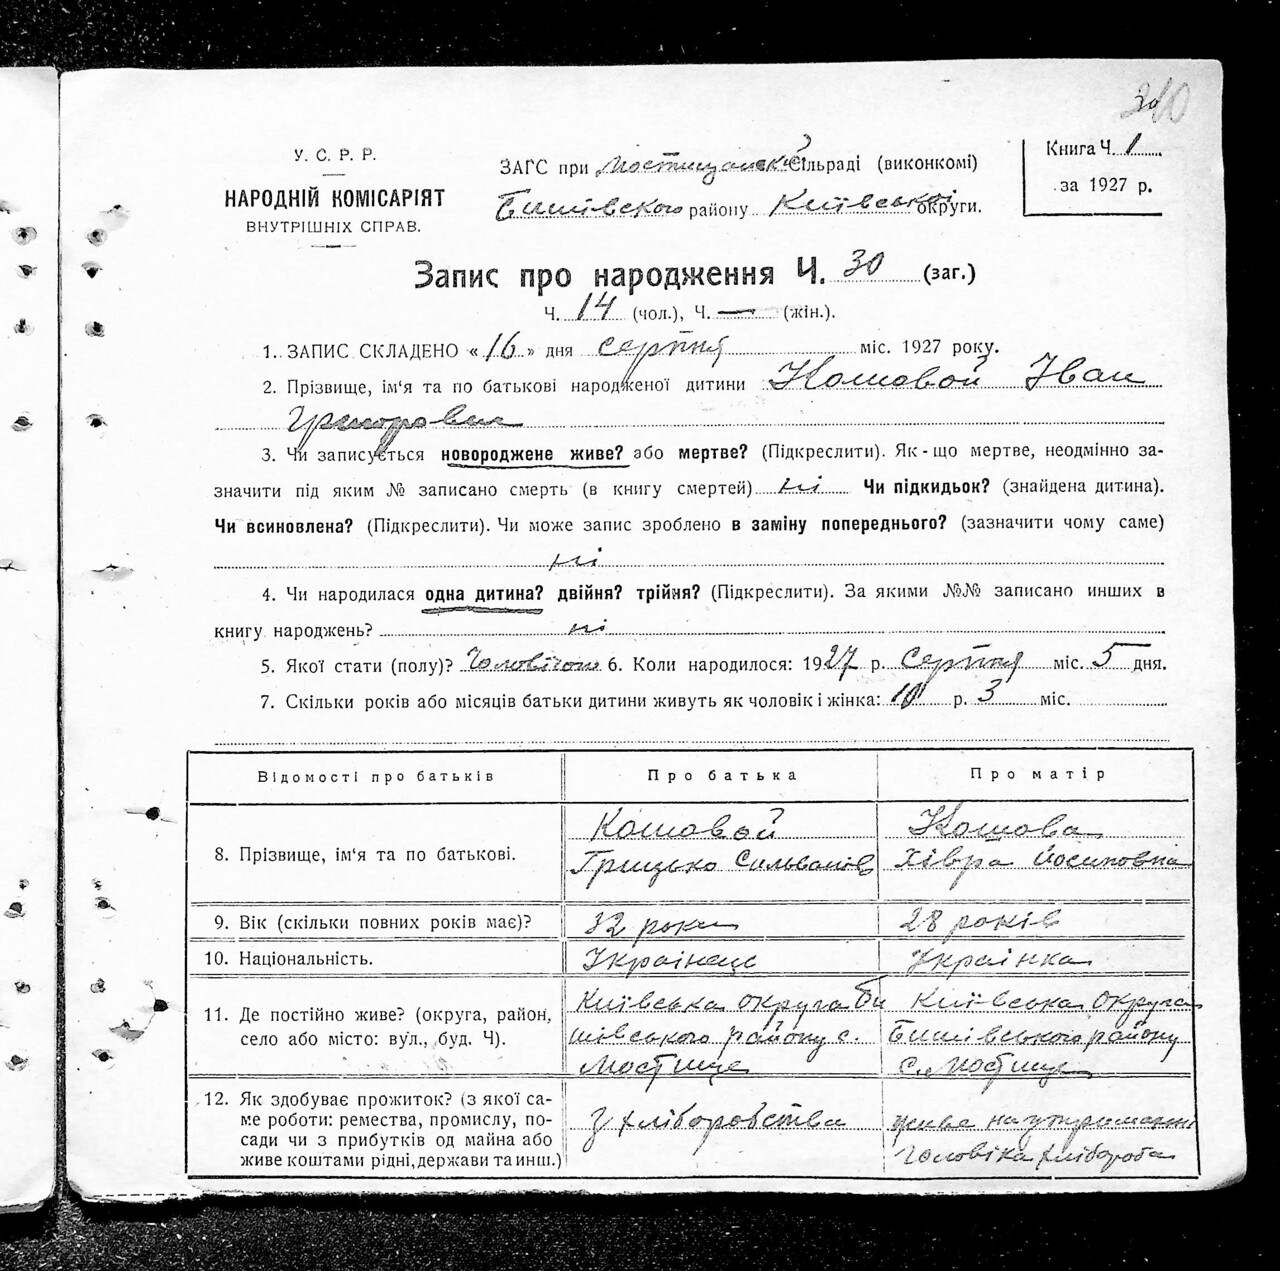 210
У. С. Р. Р.
НАРОДНІЙ КОМІСАРІЯТ
ВНУТРІШНІХ СПРАВ.
ЗАГС при Мостищанській сільраді (виконкомі)
Бишівского району Київської округи.
Книга Ч. 1
за 1927 р.
Запис про народження Ч. 30 (заг.)
Ч. 14 (чол.), Ч. — (жін.).
1. ЗАПИС СКЛАДЕНО «16» дня серпня міс. 1927 року.
2. Прізвище, ім'я та по батькові народженої дитини Кошовой Іван
Григорович
3. Чи записується новороджене живе? або мертве? (Підкреслити). Як-що мертве, неодмінно за-
значити під яким № записано смерть (в книгу смертей) ні Чи підкидьок? (знайдена дитина).
Чи всиновлена? (Підкреслити). Чи може запис зроблено в заміну попереднього? (зазначити чому саме)
ні
4. Чи народилася одна дитина? двійня? трійня? (Підкреслити). За якими №№ записано инших в
книгу народжень? ні
5. Якої стати (полу)? Чоловічої 6. Коли народилося: 1927 р. серпня міс. 5 дня.
7. Скільки років або місяців батьки дитини живуть як чоловік і жінка: 10 р. 3 міс.
Відомості про батьків Про батька Про матір
8. Прізвище, ім'я та по батькові.
Кошовой
Грицько
Кошова
Хівра Йосиповна
9. Вік (скільки повних років має)? 32 роки 28 років
10. Національність. Українець Українка
11. Де постійно живе? (округа, район,
село або місто: вул., буд. Ч).
Київська округа Би
шівського району с.
Мостище
Київська округа
Бишівського району
с. Мостище
12. Як здобуває прожиток? (з якої са-
ме роботи: ремества, промислу, по-
сади чи з прибутків од майна або
живе коштами рідні, держави та инш.)
З хліборобства
живе на утриманні
Чоловіка хлібороба